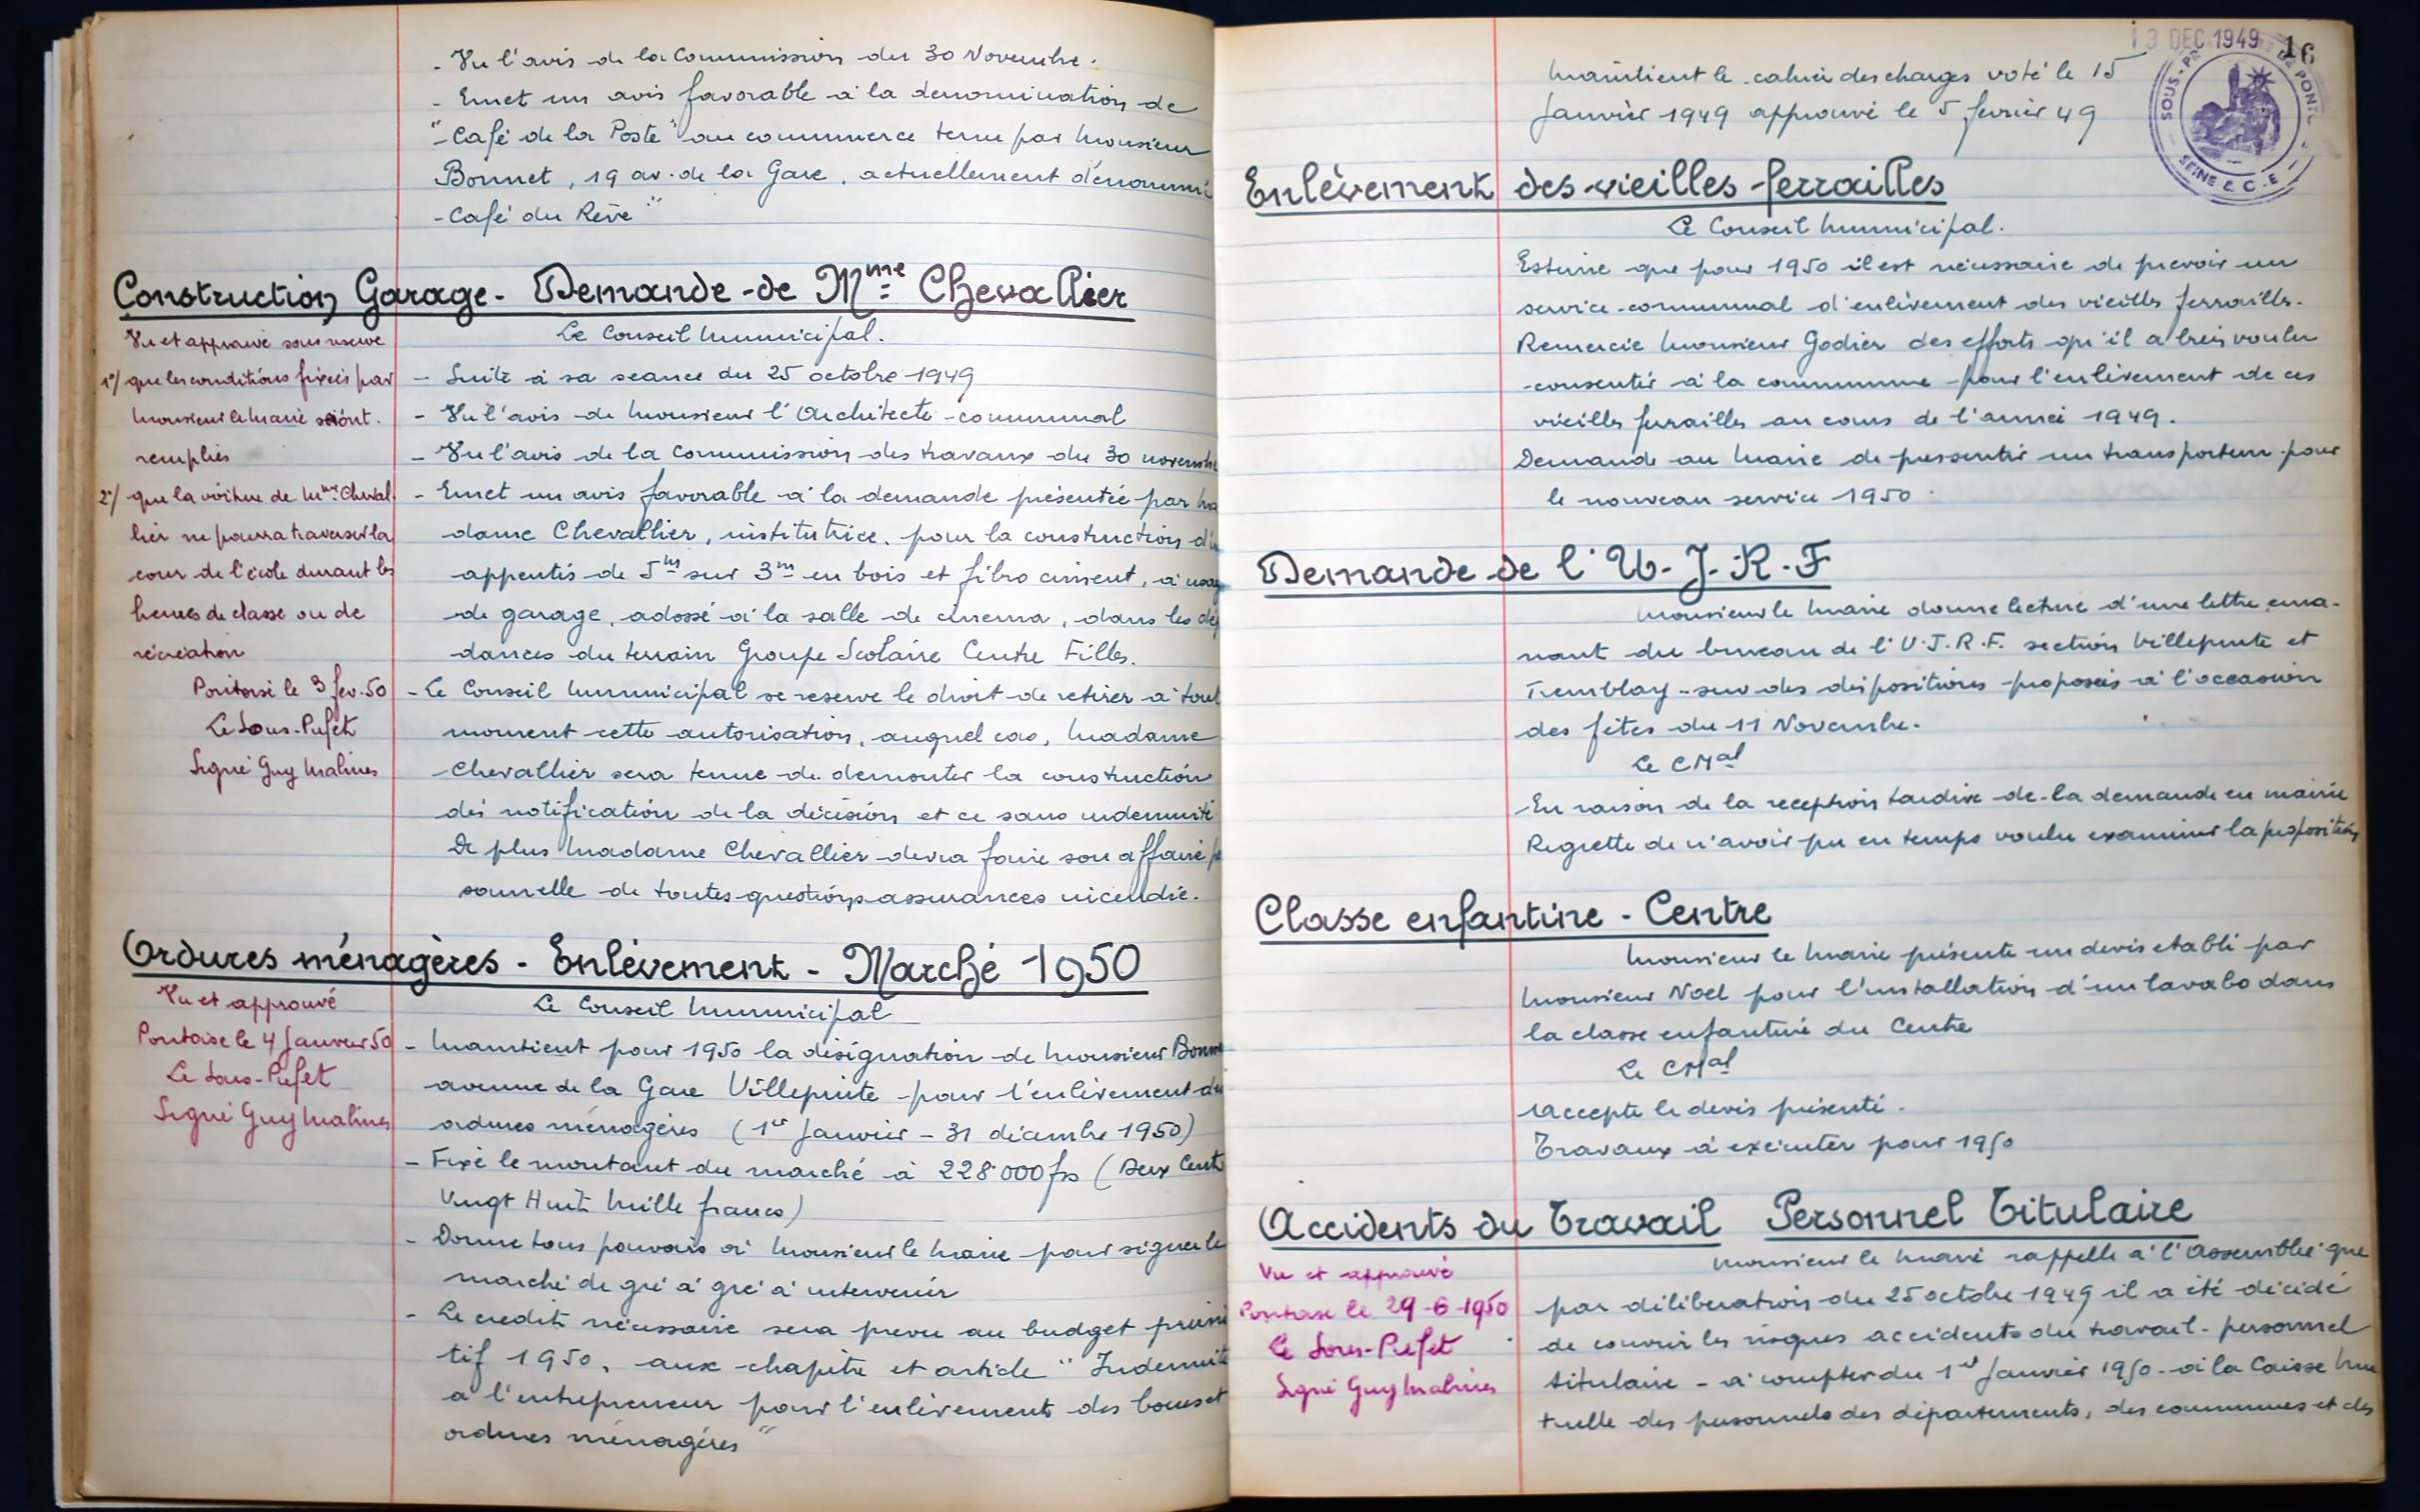 - Vu l'avis de la Commission du 30 Novembre.
- Emet un avis favorable à la denomination de
"Café de la Poste" au commerce tenu par Monsieur
Bonnet, 19 av. de la Gare, actuellement dénommé
"Café du Rêve"
Construction Garage - Demande de Mme Chevallier
Le Conseil Municipal.
- Suite à sa seance du 25 octobre 1949
- Vu l'avis de Monsieur l'Architecte communal
- Vu l'avis de la Commission des travaux du 30 novembre
- Emet un avis favorable à la demande présentée par Ma
dame Chevallier, institutrice, pour la construction d'u
appentis de 5m sur 3m en bois et fibro ciment, à usag
de garage, adossé à la salle de cinema, dans les dé
dances du terrain Groupe Scolaire Centre Filles.
- Le Conseil Municipal se reserve le droit de retirer à tout
moment cette autorisation, auquel cas, Madame
Chevallier sera tenue de demonter la construction
dès notification de la décision et ce sans indemnité
De plus Madame Chevallier devra faire son affaire pe
sonnelle de toutes questions assurances incendie.
Vu et approuvé sous reserve
1°/ que les conditions fixées par
Monsieur le Maire soient
remplies
2°/ que la voiture de Mme Cheval
lier ne pourra traverser la
cour de l'école durant les
heures de classe ou de
récréation
Pontoise le 3 fev. 50
Le Sous-Préfet
Signé Guy Malines
Ordures ménagères - Enlèvement - Marché 1950
Le Conseil Municipal
- Maintient pour 1950 la désignation de Monsieur Bonn
avenue de la Gare Villepinte pour l'enlèvement des
ordures ménagères (1er Janvier - 31 décembre 1950)
- Fixe le montant du marché à 228.000 frs (Deux Cent
Vingt Huit Mille francs)
- Donne tous pouvoirs à Monsieur le Maire pour signer le
marché de gré à gré à intervenir
- Le credit nécessaire sera prevu au budget primi
tif 1950, aux chapitre et article "Indemnité
à l'entrepreneur pour l'enlèvement des boues et
ordures ménagères"
Vu et approuvé
Pontoise le 4 Janvier 50
Le Sous-Préfet
Signé Guy Malines
13 DEC 1949
16
SOUS-PR DE PONT
SEINE & O
Maintient le cahier des charges voté le 15
Janvier 1949 approuvé le 5 fevrier 49
Enlèvement des vieilles ferrailles
Le Conseil Municipal.
Estime que pour 1950 il est nécessaire de prevoir un
service communal d'enlèvement des vieilles ferrailles.
Remercie Monsieur Godier des efforts qu'il a bien voulu
consentir à la commune pour l'enlèvement de ces
vieilles ferrailles au cours de l'année 1949.
Demande au Maire de pressentir un transporteur pour
le nouveau service 1950.
Demande de l'U.J.R.F
Monsieur le Maire donne lecture d'une lettre éma-
nant du bureau de l'U.J.R.F. section Villepinte et
Tremblay - sur des dispositions proposées à l'occasion
des fêtes du 11 Novembre.
Le CMal
En raison de la reception tardive de la demande en mairie
Regrette de n'avoir pu en temps voulu examiner la proposition
Classe enfantine - Centre
Monsieur le Maire présente un devis etabli par
Monsieur Noel pour l'installation d'un lavabo dans
la classe enfantine du Centre
Le CMal
Accepte le devis présenté.
Travaux à exécuter pour 1950
Accidents du Travail Personnel Titulaire
Monsieur le Maire rappelle à l'Assemblée que
par délibération du 25 octobre 1949 il a été décidé
de couvrir les risques accidents du travail - personnel
titulaire - à compter du 1er Janvier 1950 - à la Caisse Mu
tuelle des personnels des départements, des communes et des
Vu et approuvé
Pontoise le 29-6-1950
Le Sous-Préfet
Signé Guy Malines